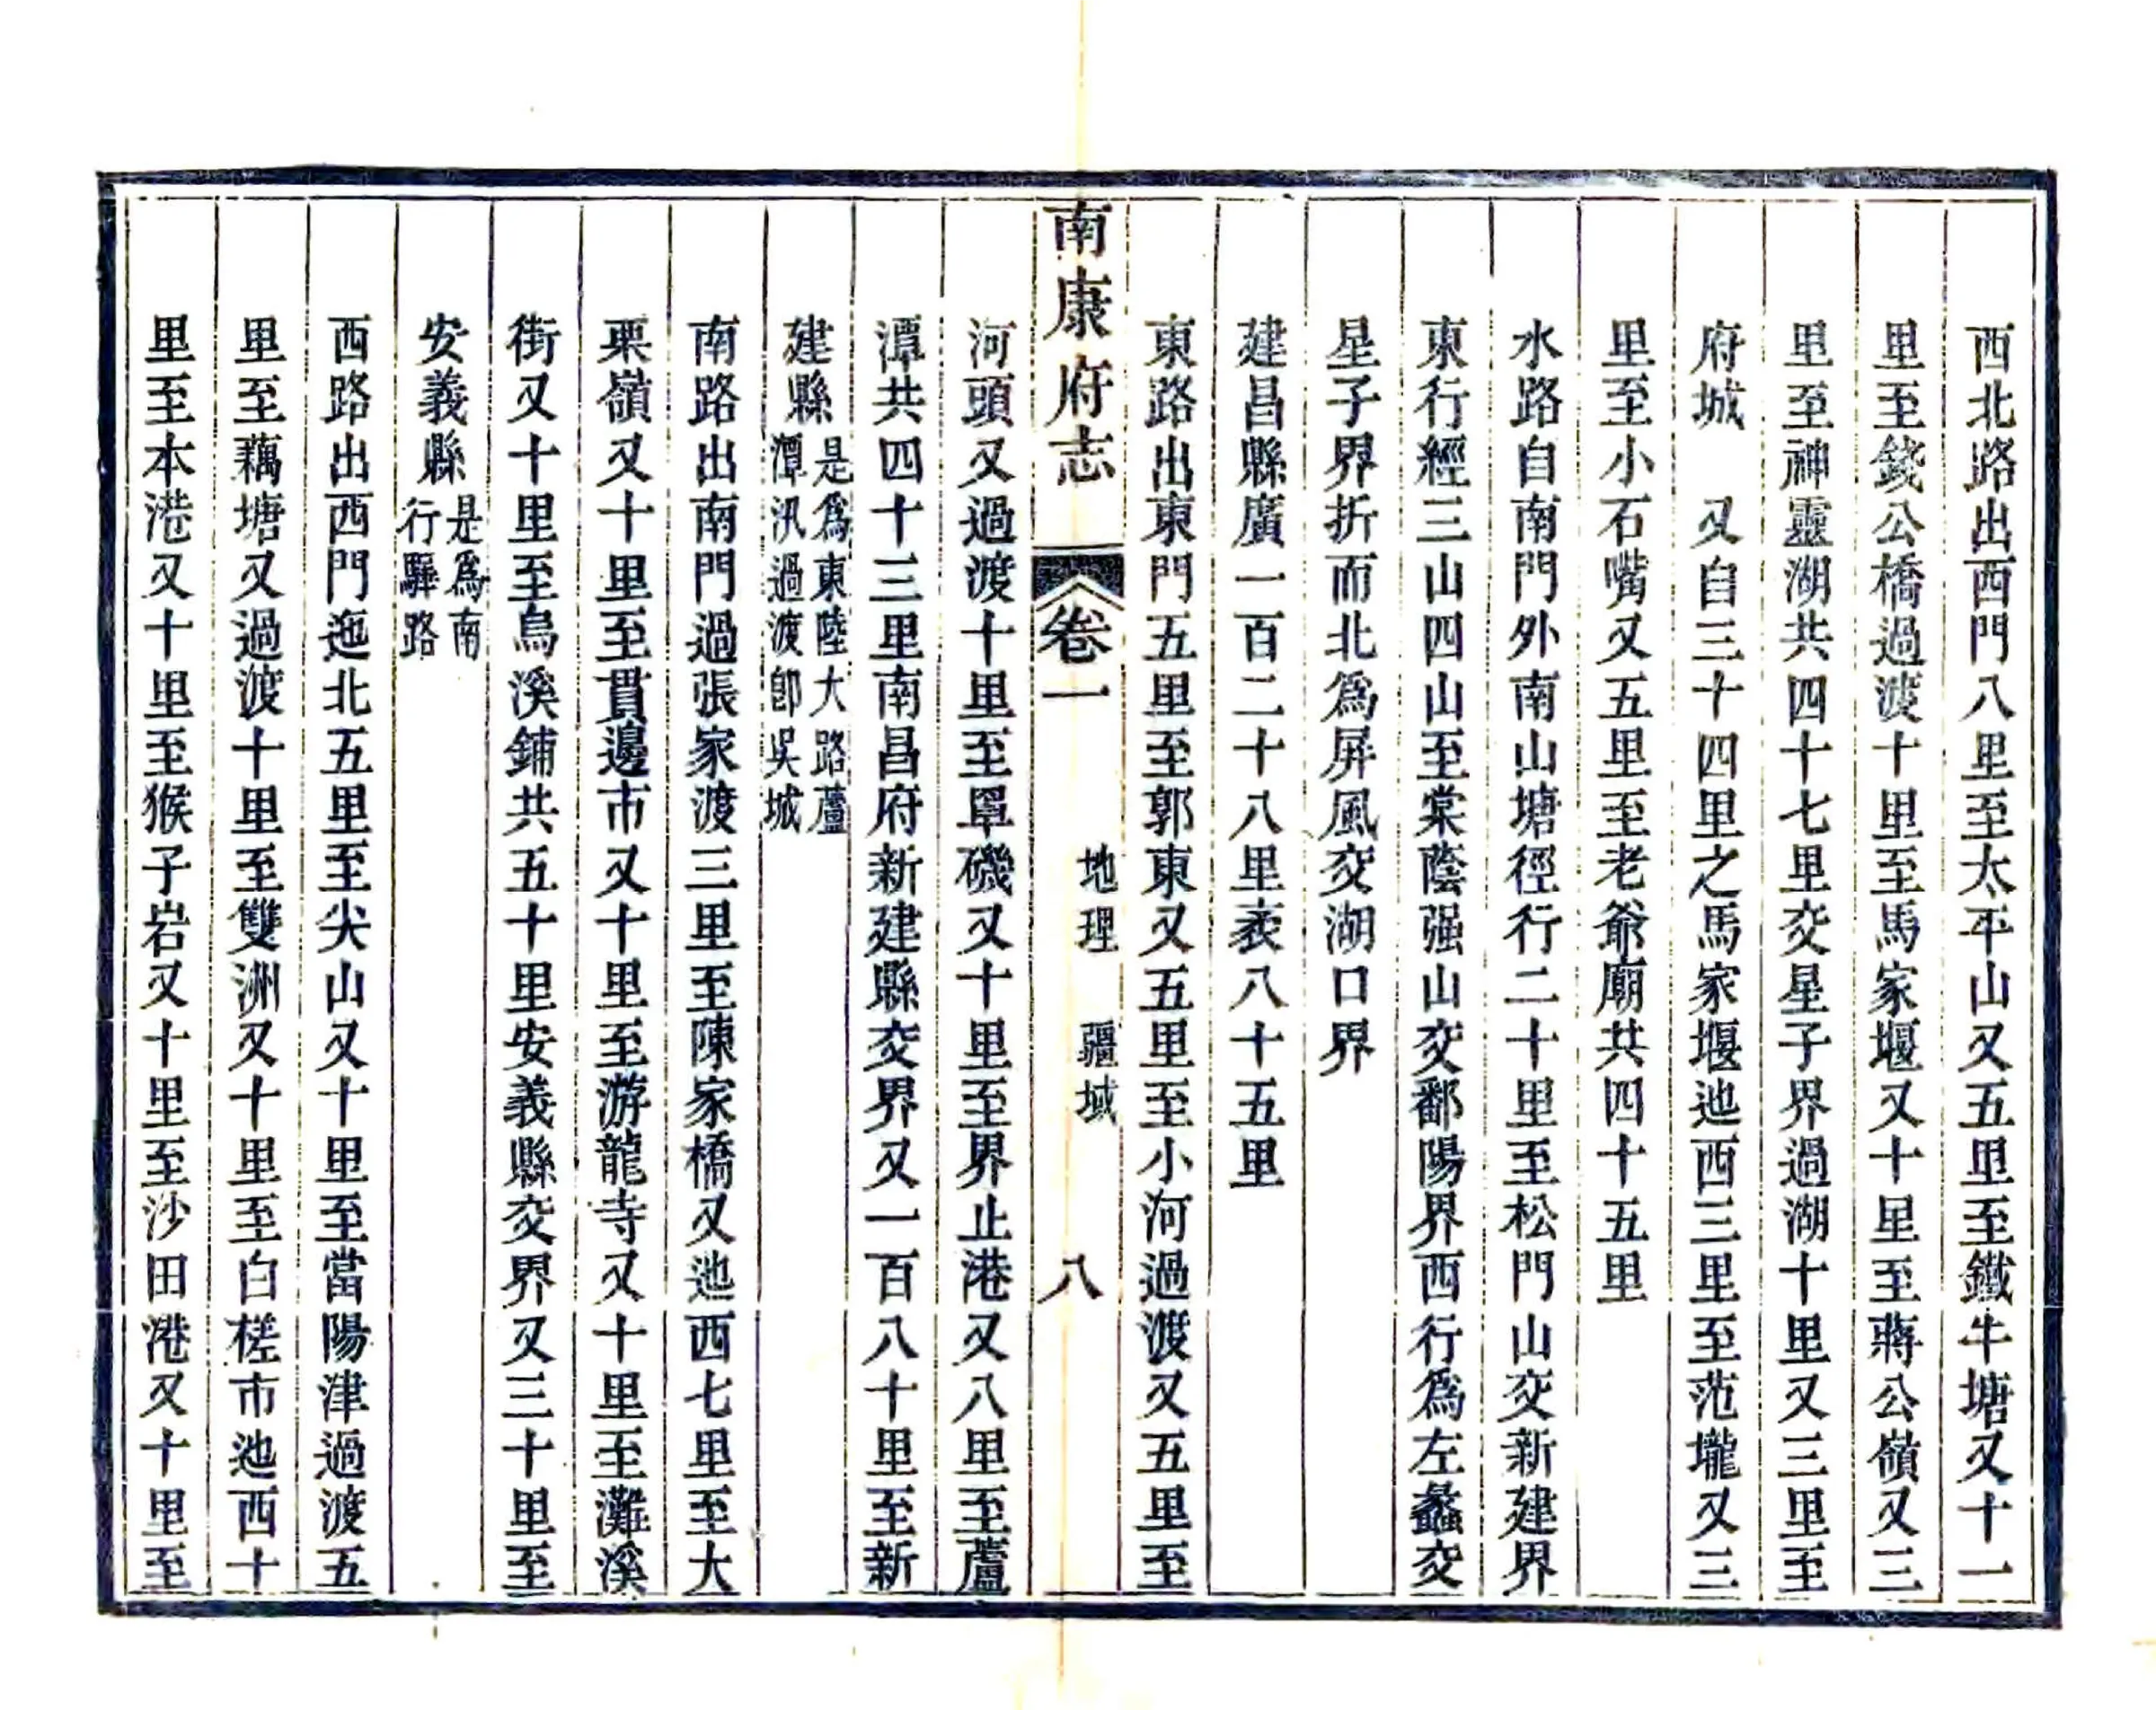 西北路出西門八里至太平山又五里至鐵牛塘又十一
里至錢公橋過渡十里至馬家堰又十里至蔣公嶺又三
里至神靈湖共四十七里交星子界過湖十里又三里至
府城　又自三十四里之馬家堰迆西三里至范壠又三
里至小石嘴又五里至老爺廟共四十五里
水路自南門外南山塘徑行二十里至松門山交新建界
東行經三山四山至棠蔭强山交鄱陽界西行爲左蠡交
星子界折而北爲屏風交湖口界
建昌縣廣一百二十八里袤八十五里
東路出東門五里至郭東又五里至小河過渡又五里至
南康府志　卷一　地理　疆域　八
河頭又過渡十里至罩磯又十里至界止港又八里至蘆
潭共四十三里南昌府新建縣交界又一百八十里至新
建縣是爲東陸大路蘆潭汛過渡卽吳城
南路出南門過張家渡三里至陳家橋又迆西七里至大
栗嶺又十里至貫邊市又十里至游龍寺又十里至灘溪
街又十里至烏溪鋪共五十里安義縣交界又三十里至
安義縣是爲南行驛路
西路出西門迤北五里至尖山又十里至當陽津過渡五
里至藕塘又過渡十里至雙洲又十里至白槎市迆西十
里至本港又十里至猴子岩又十里至沙田港又十里至